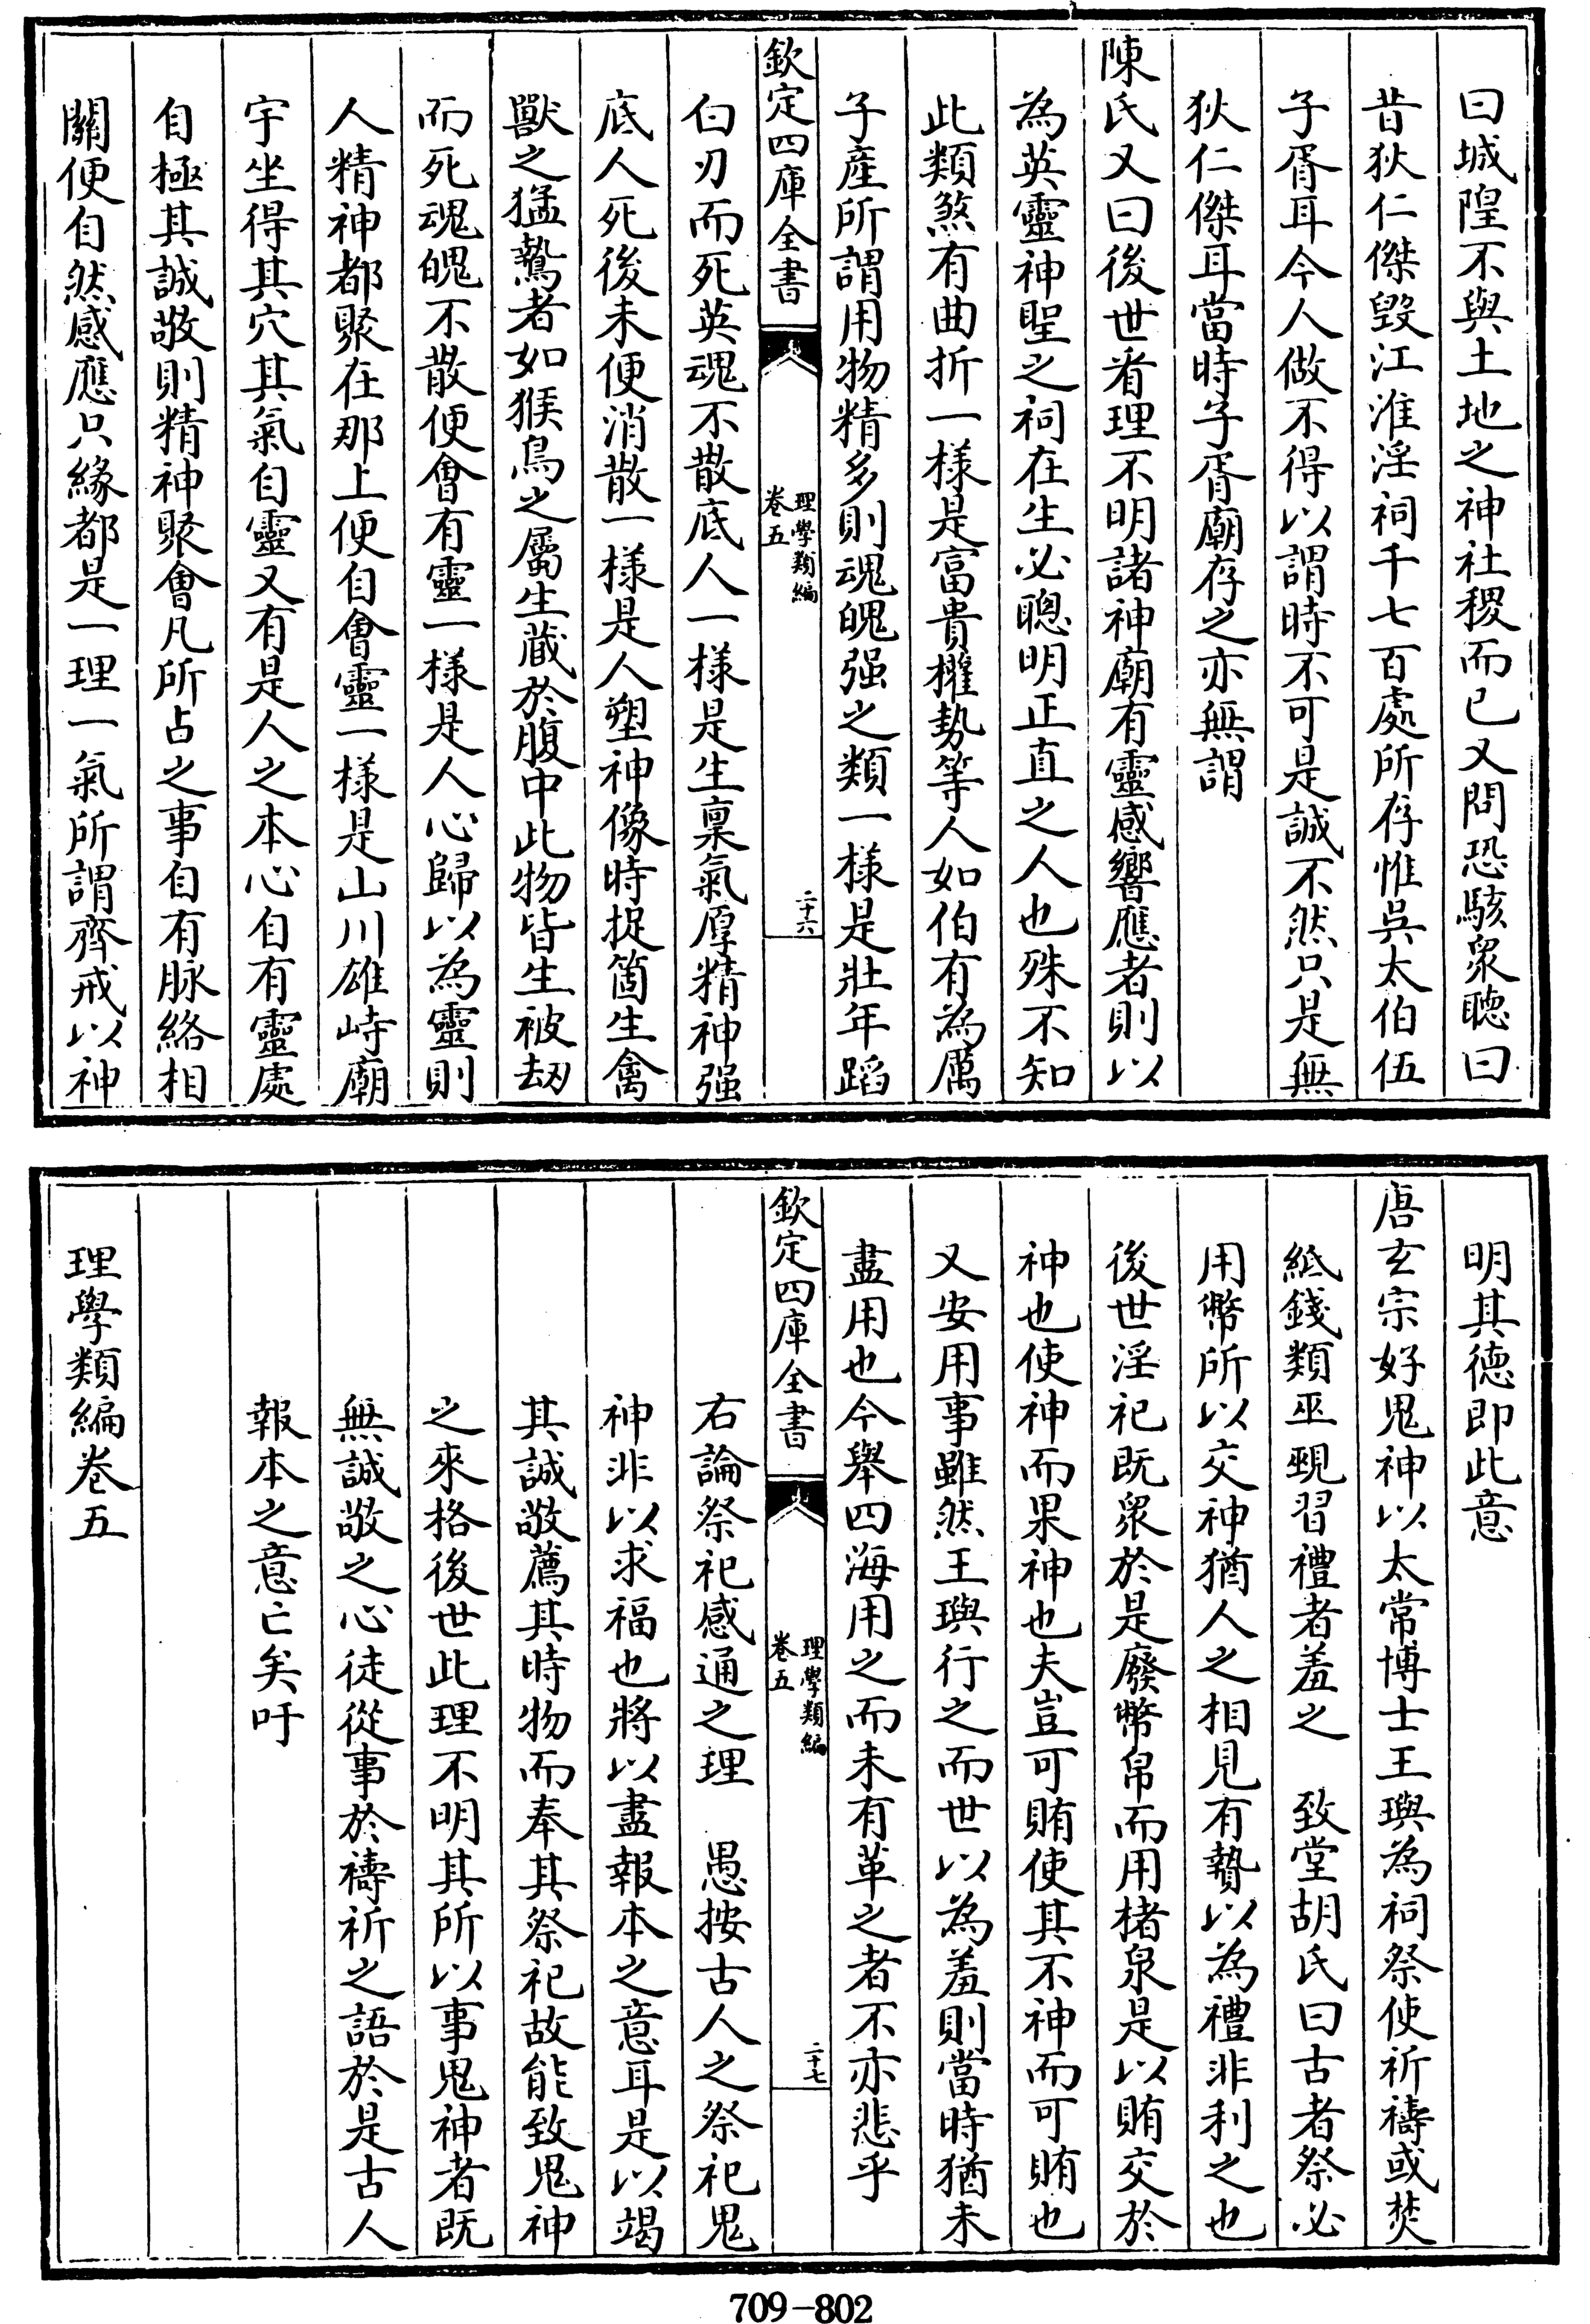 曰城隍不與土地之神社稷而已又問恐駭衆聽曰
昔狄仁傑毀江淮淫祠千七百處所存惟吳太伯伍
子胥耳今人做不得以謂時不可是誠不然只是無
狄仁傑耳當時子胥廟存之亦無謂
陳氏又曰後世看理不明諸神廟有靈感響應者則以
為英靈神聖之祠在生必聰明正直之人也殊不知
此類煞有曲折一樣是富貴權勢等人如伯有為厲
子產所謂用物精多則魂魄强之類一樣是壯年蹈
欽定四庫全書
理學類編
卷五
二十六
白刃而死英魂不散底人一樣是生稟氣厚精神强
底人死後未便消散一樣是人塑神像時捉箇生禽
獸之猛鷙者如猴鳥之屬生藏於腹中此物皆生被刼
而死魂魄不散便會有靈一樣是人心歸以為靈則
人精神都聚在那上便自會靈一樣是山川雄峙廟
宇坐得其穴其氣自靈又有是人之本心自有靈處
自極其誠敬則精神聚會凡所占之事自有脉絡相
關便自然感應只緣都是一理一氣所謂齊戒以神
明其德即此意
唐玄宗好鬼神以太常博士王璵為祠祭使祈禱或焚
紙錢類巫覡習禮者羞之　致堂胡氏曰古者祭必
用幣所以交神猶人之相見有贄以為禮非利之也
後世淫祀既衆於是廢幣帛而用楮泉是以賄交於
神也使神而果神也夫豈可賄使其不神而可賄也
又安用事雖然王璵行之而世以為羞則當時猶未
盡用也今舉四海用之而未有革之者不亦悲乎
欽定四庫全書
理學類編
卷五
二十七
右論祭祀感通之理　愚按古人之祭祀鬼
神非以求福也將以盡報本之意耳是以竭
其誠敬薦其時物而奉其祭祀故能致鬼神
之來格後世此理不明其所以事鬼神者既
無誠敬之心徒從事於禱祈之語於是古人
報本之意亡矣吁
理學類編卷五
709-802